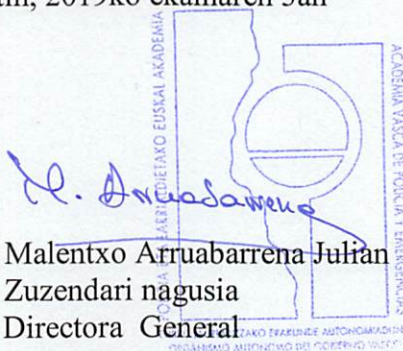 2019ko ekainaren 5an
M. Arruabarrena
Malentxo Arruabarrena Julian
Zuzendari nagusia
Directora General
EUSKAL AKADEMIA
ACADEMIA VASCA DE POLICIA Y EMERGENCIAS
ERAKUNDE AUTONOMIADUN
ORGANISMO AUTONOMO DEL GOBIERNO VASCO